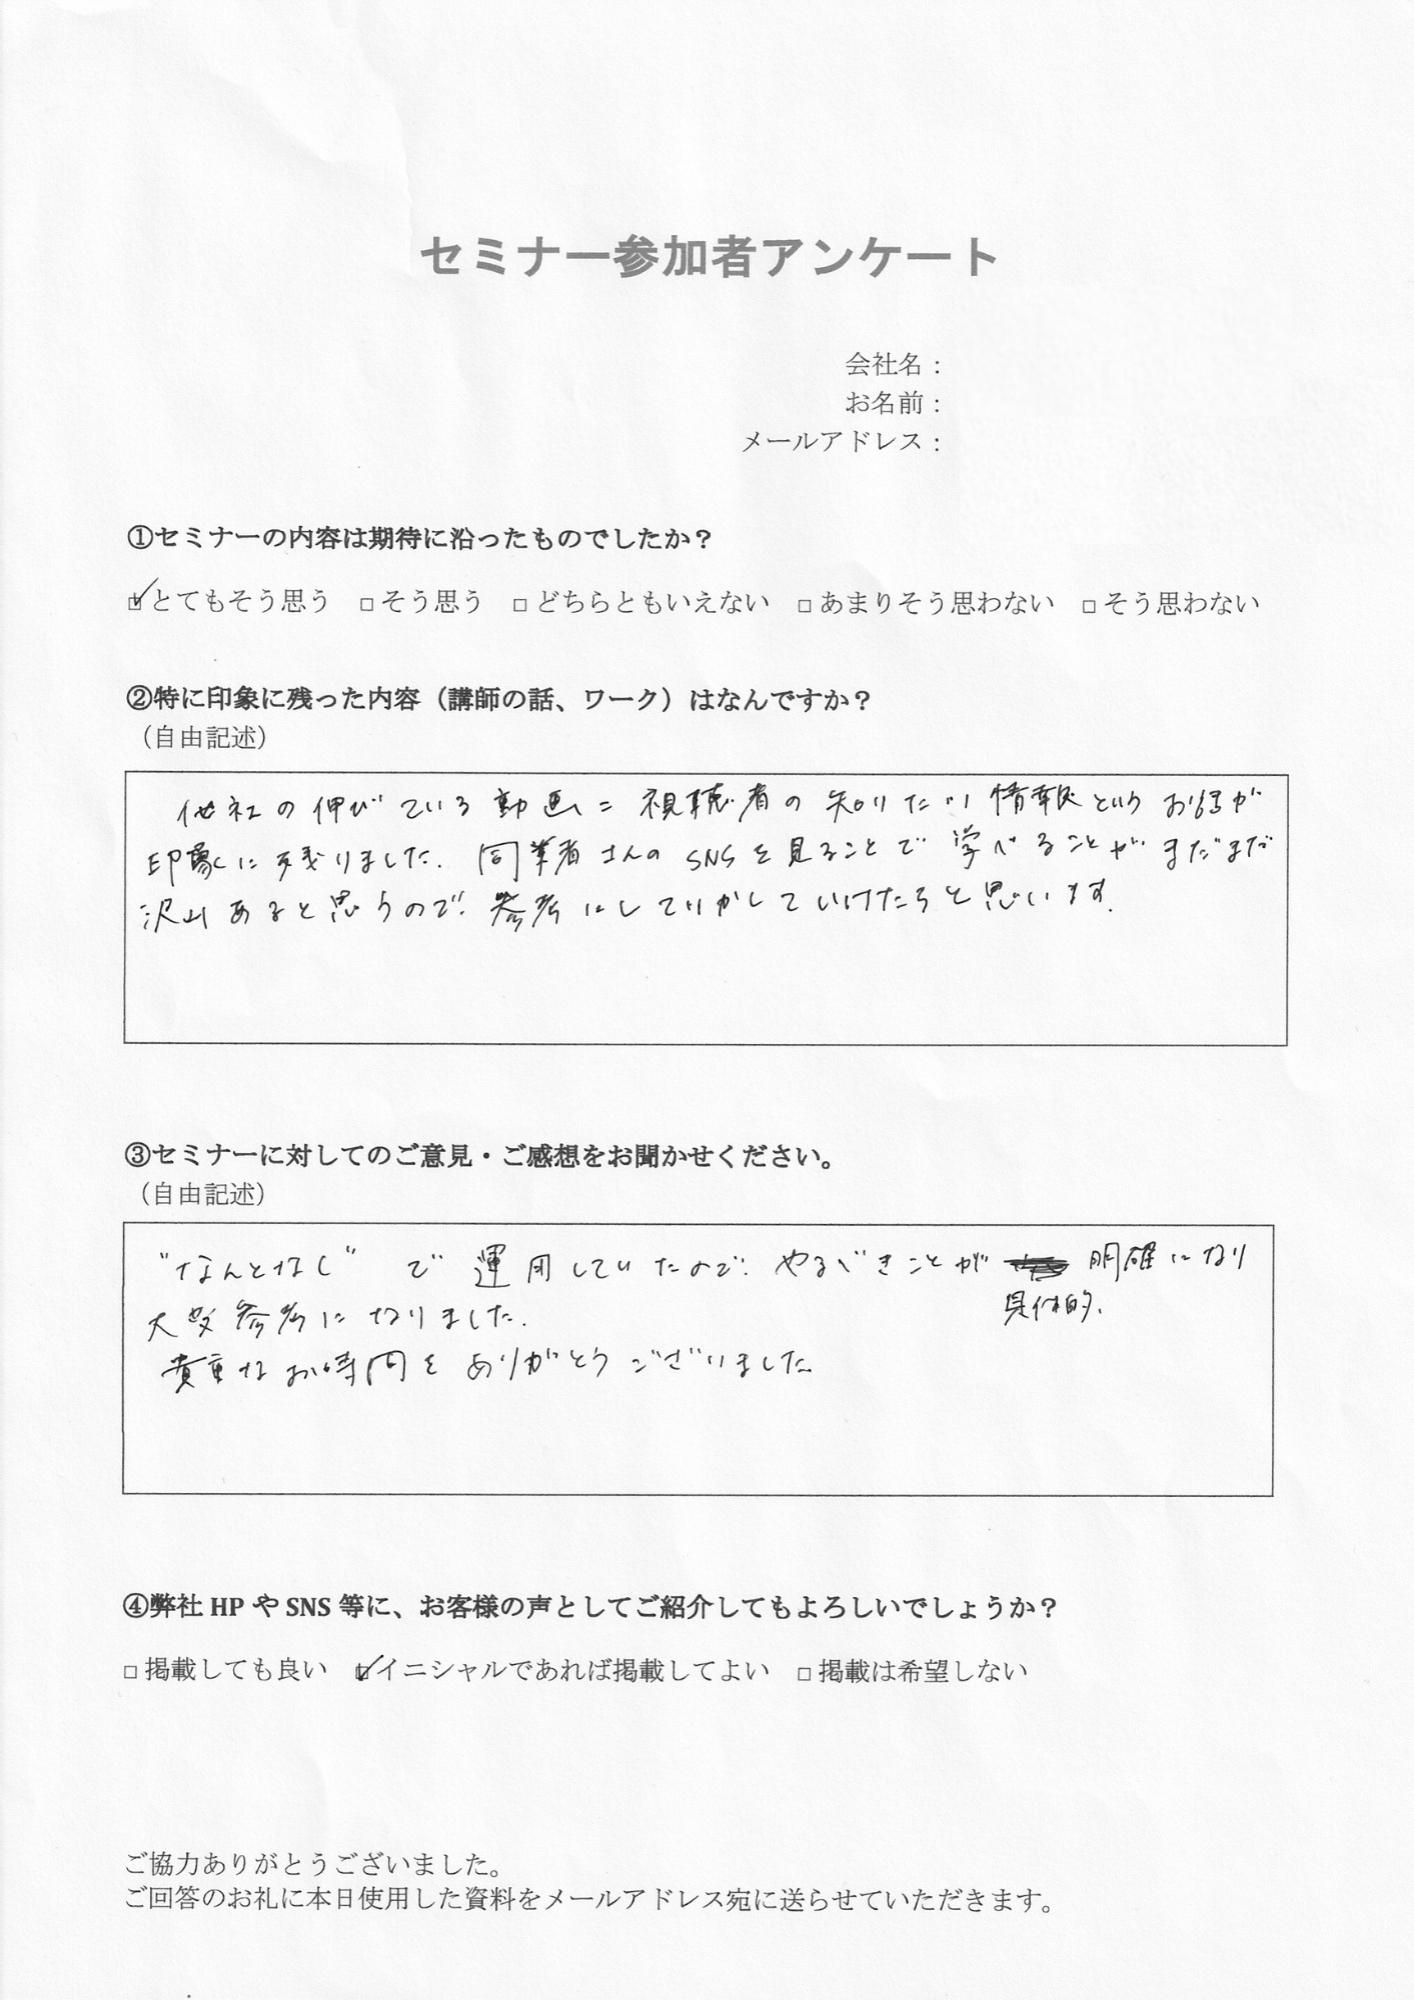 セミナー参加者アンケート
会社名：
お名前：
メールアドレス：
①セミナーの内容は期待に沿ったものでしたか？
☑とてもそう思う □そう思う □どちらともいえない □あまりそう思わない □そう思わない
②特に印象に残った内容（講師の話、ワーク）はなんですか？
（自由記述）
他社の伸びている動画＝視聴者の知りたい情報というお話が
印象に残りました。同業者さんのSNSを見ることで学べることがまだまだ
沢山あると思うので、参考にして いかしていけたらと思います。
③セミナーに対してのご意見・ご感想をお聞かせください。
（自由記述）
"なんとなく"で運用していたので、やるべきことが 明確になり
具体的、
大変参考になりました。
貴重なお時間をありがとうございました
④弊社 HP や SNS 等に、お客様の声としてご紹介してもよろしいでしょうか？
□掲載しても良い ☑イニシャルであれば掲載してよい □掲載は希望しない
ご協力ありがとうございました。
ご回答のお礼に本日使用した資料をメールアドレス宛に送らせていただきます。